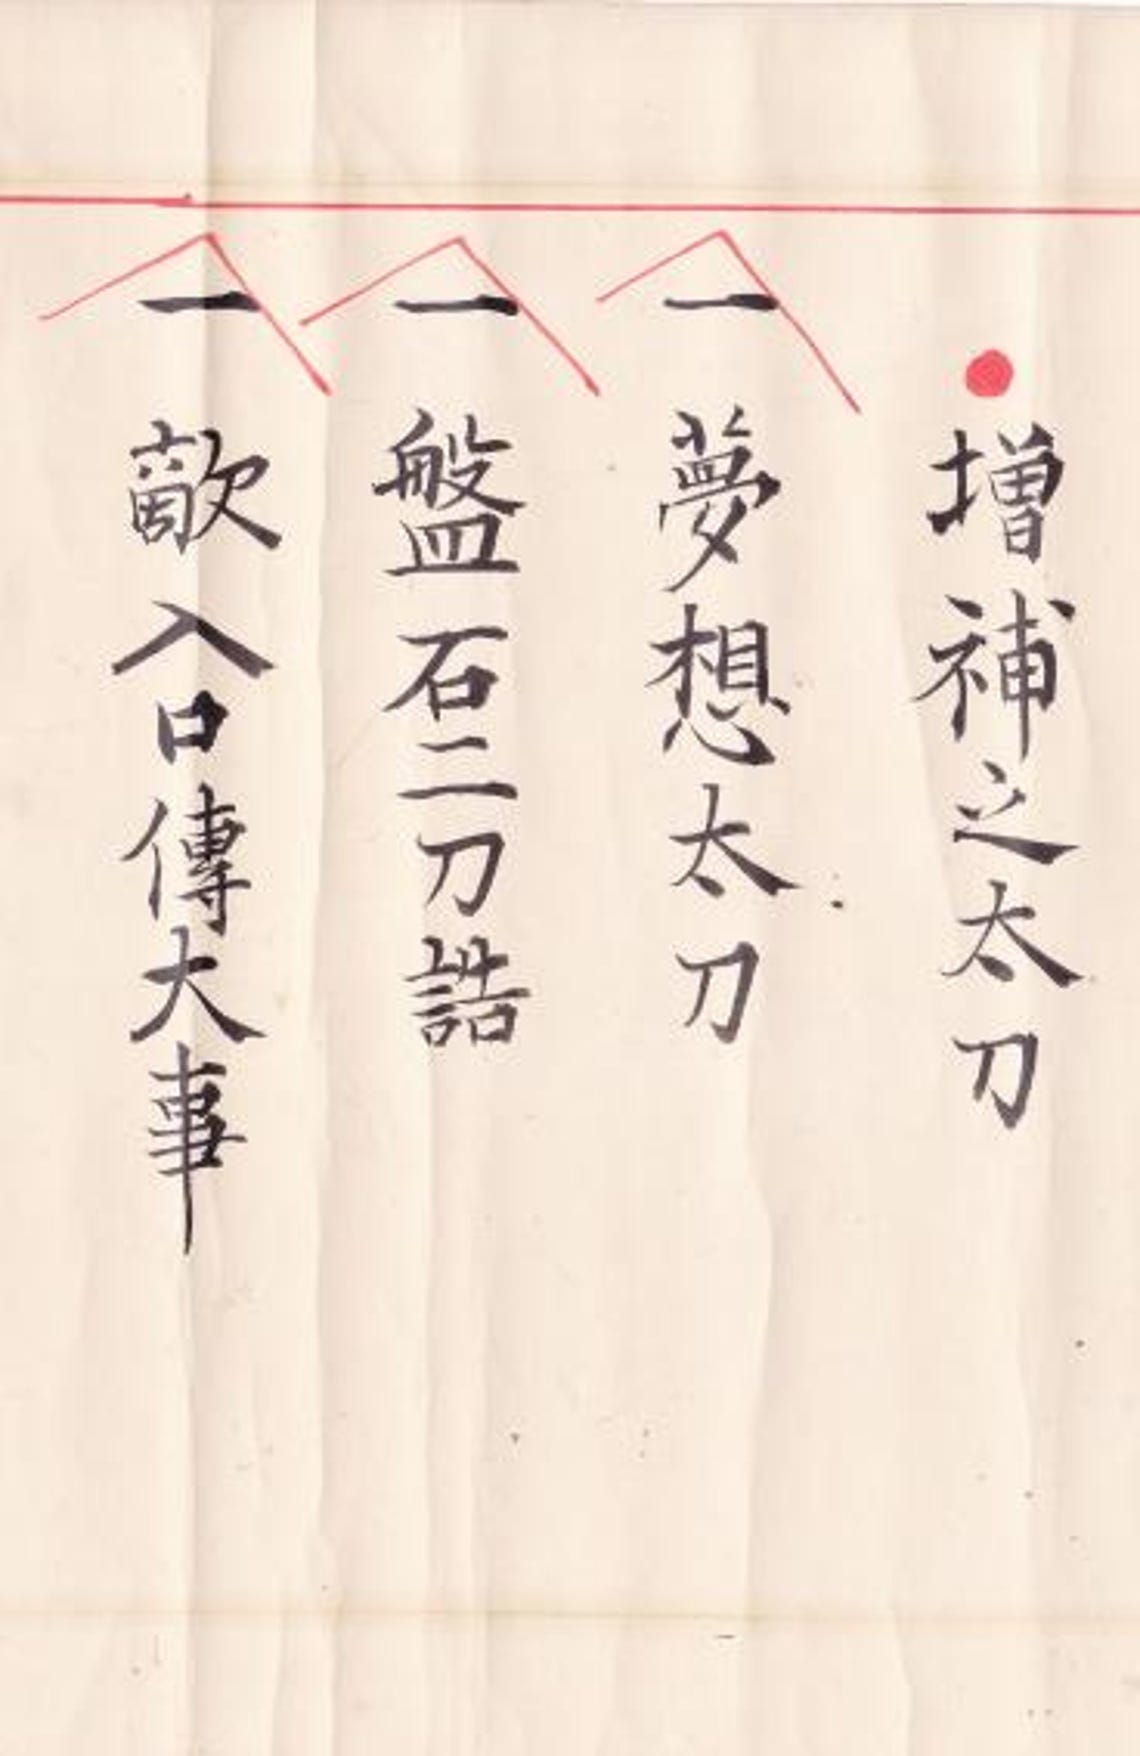 増補之太刀
一 夢想太刀
一 盤石二刀誥
一 敵入口傳大事